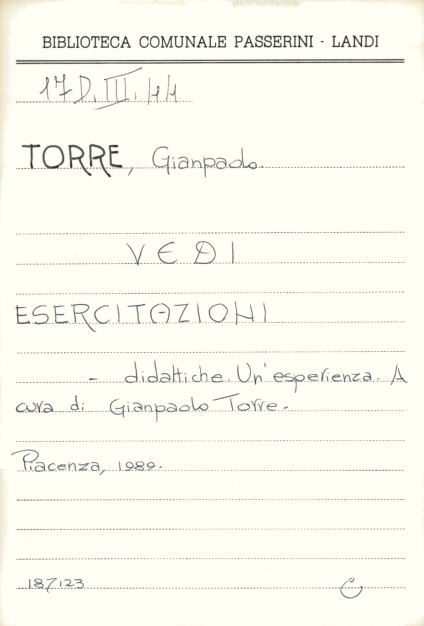 BIBLIOTECA COMUNALE PASSERINI - LANDI
17 D. III. 44
TORRE, Gianpaolo.
VEDI
ESERCITAZIONI
- didattiche. Un'esperienza. A
cura di Gianpaolo Torre.
Piacenza, 1989.
187123
C